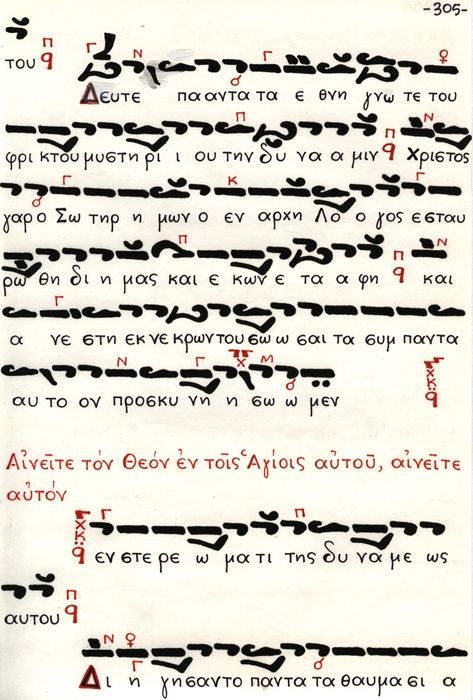 -305-
του
Δευτε πααντα τα ε θνη γνω τε του
φρι κτου μυστη ρι ι ου την δυ να α μιν Χριστος
γαρ ο Σω τηρ η μων ο εν αρχη Λο ο γος ε σταυ
ρω θη δι η μας και ε κων ε τα α φη και
α νε στη εκ νε κρων του σω ω σαι τα συμ παντα
αυ το ον προσκυ νη η σω ω μεν
Αἰνεῖτε τὸν Θεὸν ἐν τοῖς Ἁγίοις αὐτοῦ, αἰνεῖτε
αὐτόν
εν στε ρε ω μα τι της δυ να με ως
αυτου
Δι η γησαντο παντα τα θαυμασι α